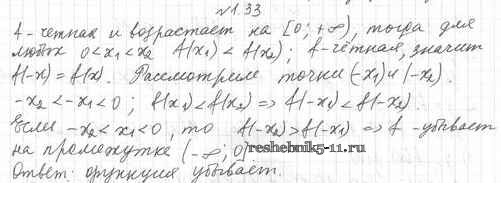 №1.33
f - четная и возрастает на [0; +∞), тогда для
любых 0 < x₁ < x₂ f(x₁) < f(x₂); f - чётная, значит
f(-x) = f(x). Рассмотрим точки (-x₁) и (-x₂).
-x₂ < -x₁ < 0; f(x₁) < f(x₂) => f(-x₁) < f(-x₂)
Если -x₂ < x₁ < 0, то f(-x₂) > f(-x₁) => f - убывает
на промежутке (-∞; 0] reshebnik5-11.ru
Ответ: функция убывает.